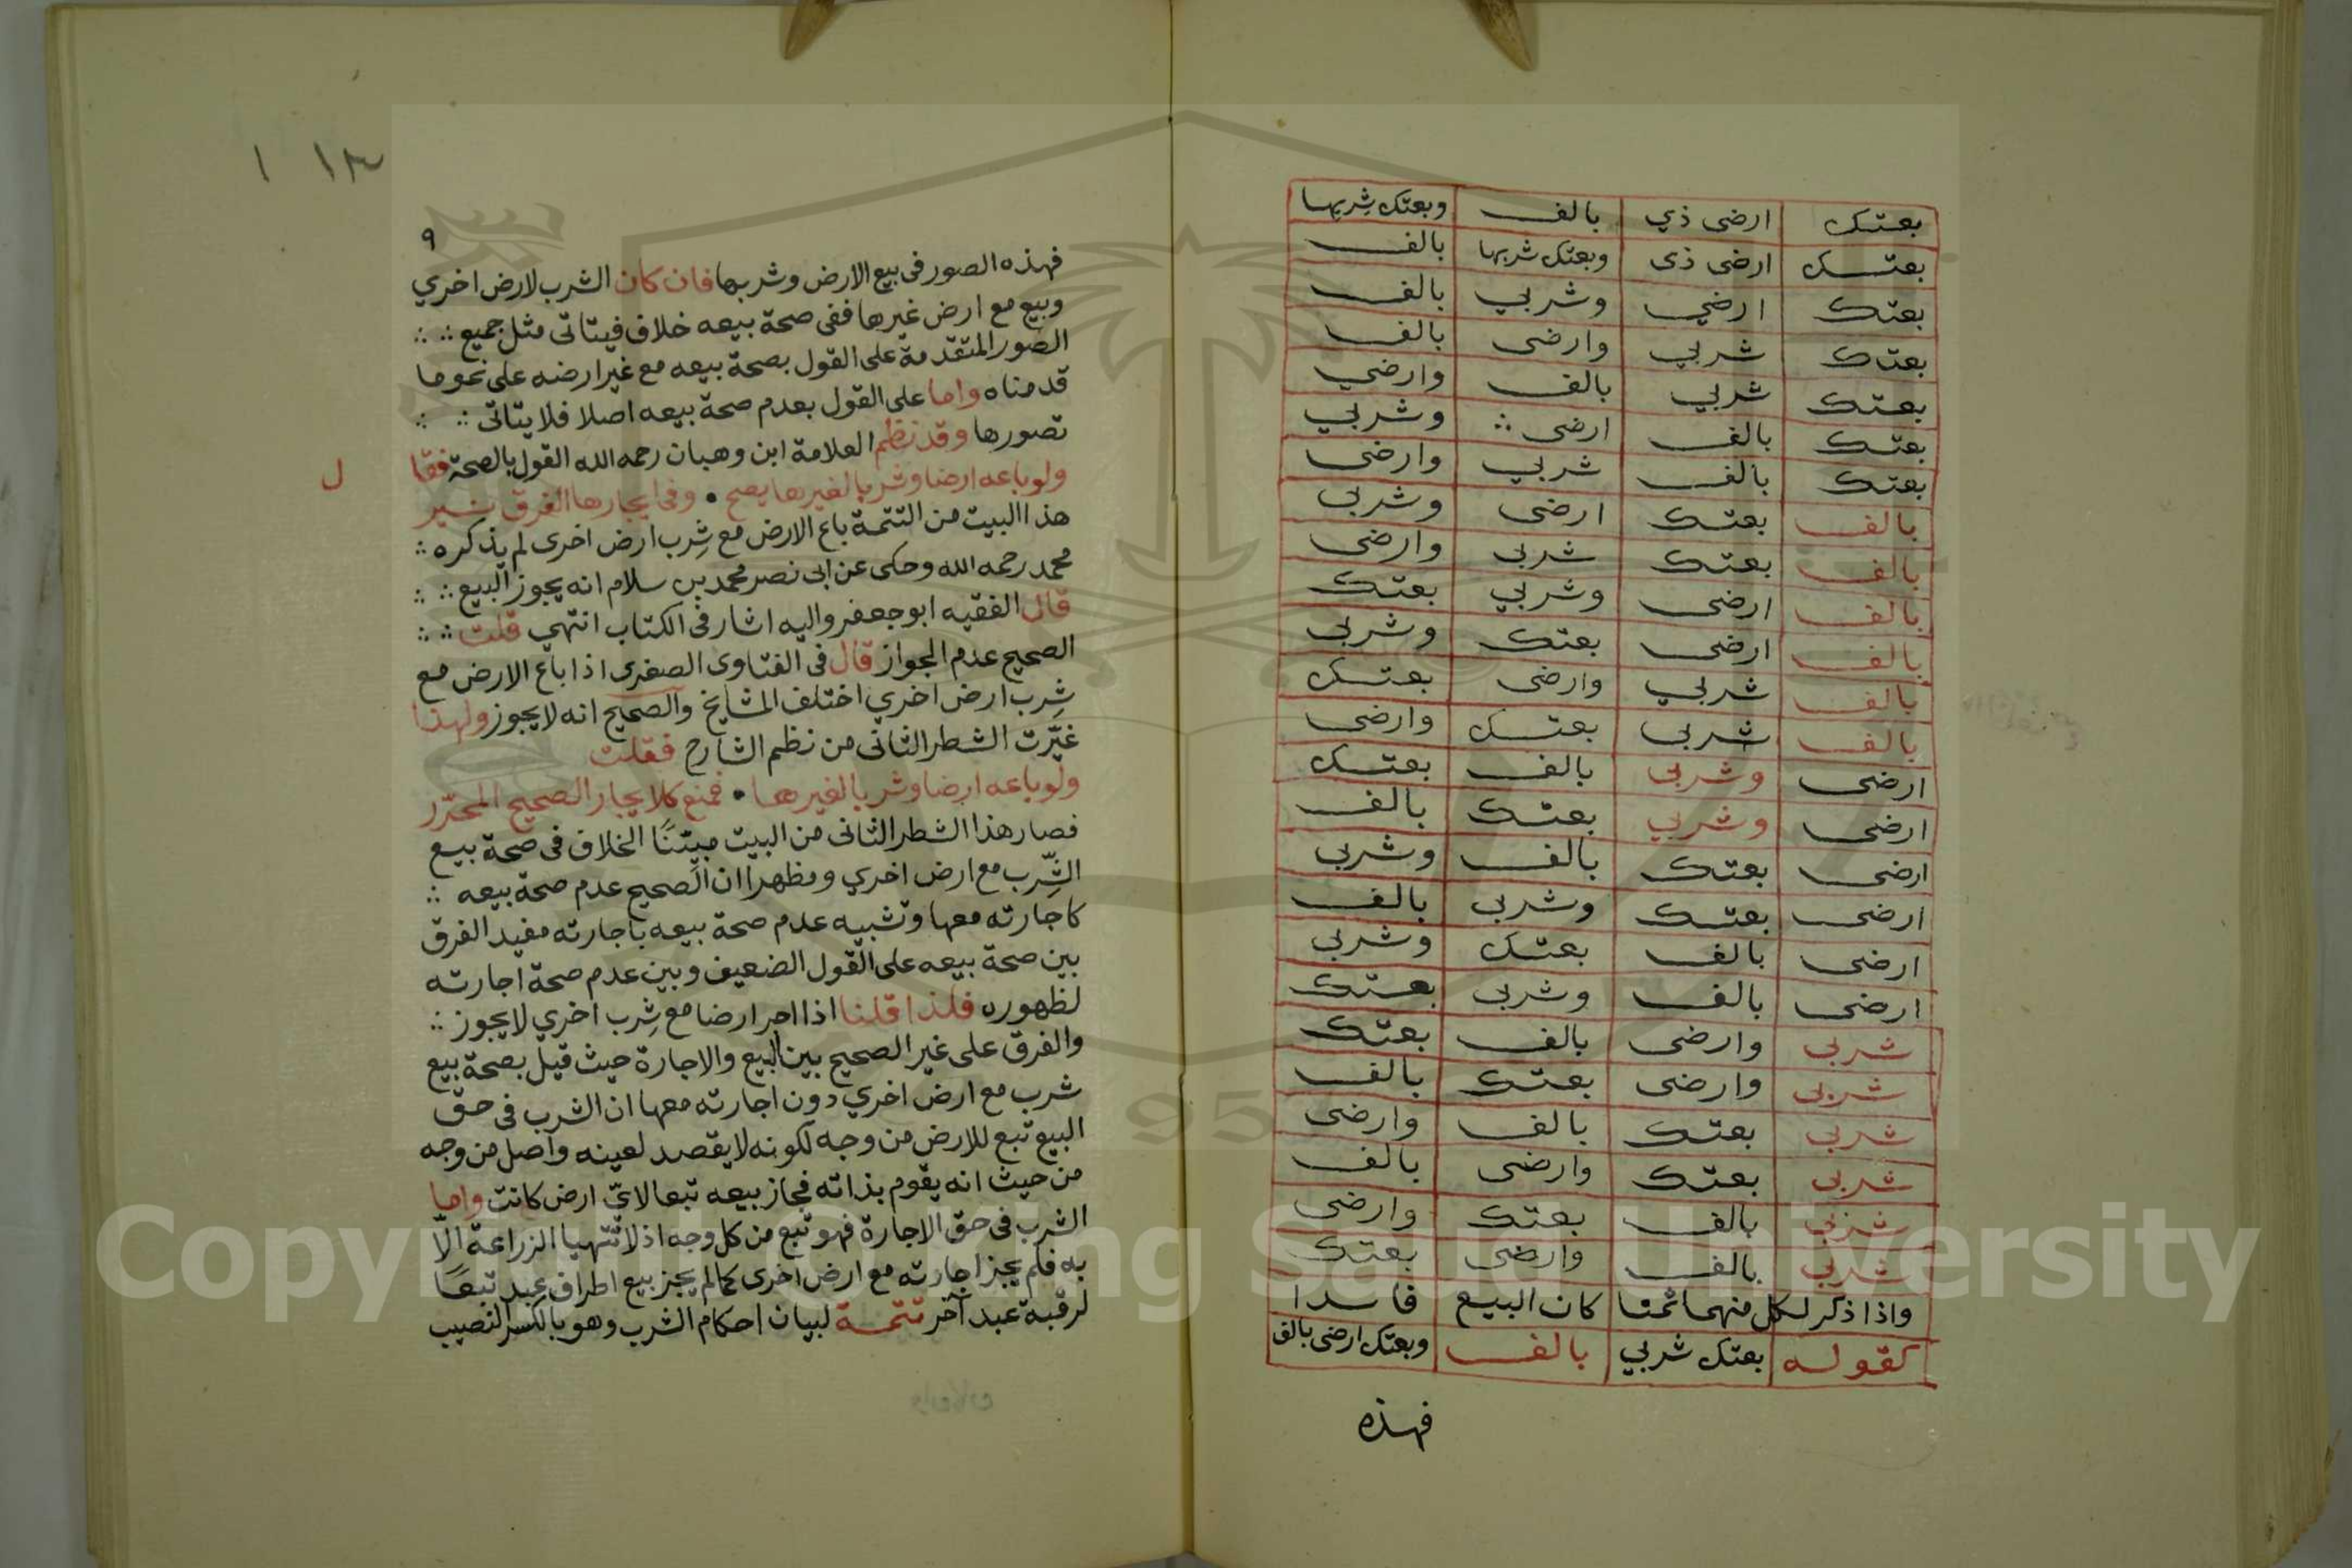 بعتك ارضى ذي بالف وبعتك شِربها
بعتك ارضى ذى وبعتك شربها بالف
بعتك ارضي وشربي بالف
بعتك شربي وارضى بالف
بعتك شربي بالف وارضي
بعتك بالف ارضى ∴ وشربي
بعتك بالف شربي وارضى
بالف بعتك ارضى وشربى
بالف بعتك شربى وارضى
بالف ارضى وشربي بعتك
بالف ارضى بعتك وشربى
بالف شربي وارضى بعتك
بالف شربى بعتك وارضى
ارضى وشربى بالف بعتك
ارضى وشربي بعتك بالف
ارضى بعتك بالف وشربى
ارضى بعتك وشربى بالف
ارضى بالف بعتك وشربى
ارضى بالف وشربى بعتك
شربى وارضى بالف بعتك
شربى وارضى بعتك بالف
شربى بعتك بالف وارضى
شربى بعتك وارضى بالف
شربى بالف بعتك وارضى
شربى بالف وارضى بعتك
واذا ذكر لكل منهما ثمنا كان البيع فاسدا
كقوله بعتك شربي بالف وبعتك ارضى بالف
فهذه
١٣ ١
٩
فهذه الصور فى بيع الارض وشربها فان كان الشرب لارض اخري
وبيع مع ارض غيرها ففى صحة بيعه خلاف فيتاتى مثل جميع ∴ ∴
الصور المتقدمة على القول بصحة بيعه مع غير ارضه على نحو ما
قدمناه واما على القول بعدم صحة بيعه اصلا فلا يتاتى ∴ ∴
تصورها وقد نظم العلامة ابن وهبان رحمه الله القول بالصحة فقا
ل
ولو باعه ارضا وشربا لغيرها يصح • وفى ايجارها الفرق نير
هذا البيت من التتمة باع الارض مع شِرب ارض اخرى لم يذكره ∴
محمد رحمه الله وحكى عن ابى نصر محمد بن سلام انه يجوز البيع ∴ ∴
قال الفقيه ابو جعفر واليه اشار فى الكتاب انتهي قلت ∴ ∴
الصحيح عدم الجواز قال فى الفتاوى الصغرى اذا باع الارض مع
شِرب ارض اخري اختلف المشايخ والصحيح انه لا يجوز ولهذا
غيّرت الشطر الثانى من نظم الشارح فقلت
ولو باعه ارضا وشربا لغيرها • فمنع كلا يجار الصحيح المحرّر
فصار هذا الشطر الثانى من البيت مبيّنًا الخلاف فى صحة بيع
الشِّرب مع ارض اخري ومظهرا ان الصحيح عدم صحة بيعه ∴
كاجارته معها وتشبيه عدم صحة بيعه باجارته مفيد الفرق
بين صحة بيعه على القول الضعيف وبين عدم صحة اجارته
لظهوره فلذا قلنا اذا اجر ارضا مع شِرب اخري لا يجوز ∴
والفرق على غير الصحيح بين البيع والاجارة حيث قيل بصحة بيع
شرب مع ارض اخري دون اجارته معها ان الشرب فى حق
البيع تبع للارض من وجه لكونه لا يقصد لعينه واصل من وجه
من حيث انه يقوم بذاته فجاز بيعه تبعا لاىّ ارض كانت واما
الشرب فى حق الاجارة فهو تبع من كل وجه اذ لا تتهيا الزراعة الّا
به فلم يجز اجارته مع ارض اخرى كما لم يجز بيع اطراف عبد تبعًا
لرقبة عبد آخر تتمة لبيان احكام الشرب وهو بالكسر النصيب
Copyright © King Saud University